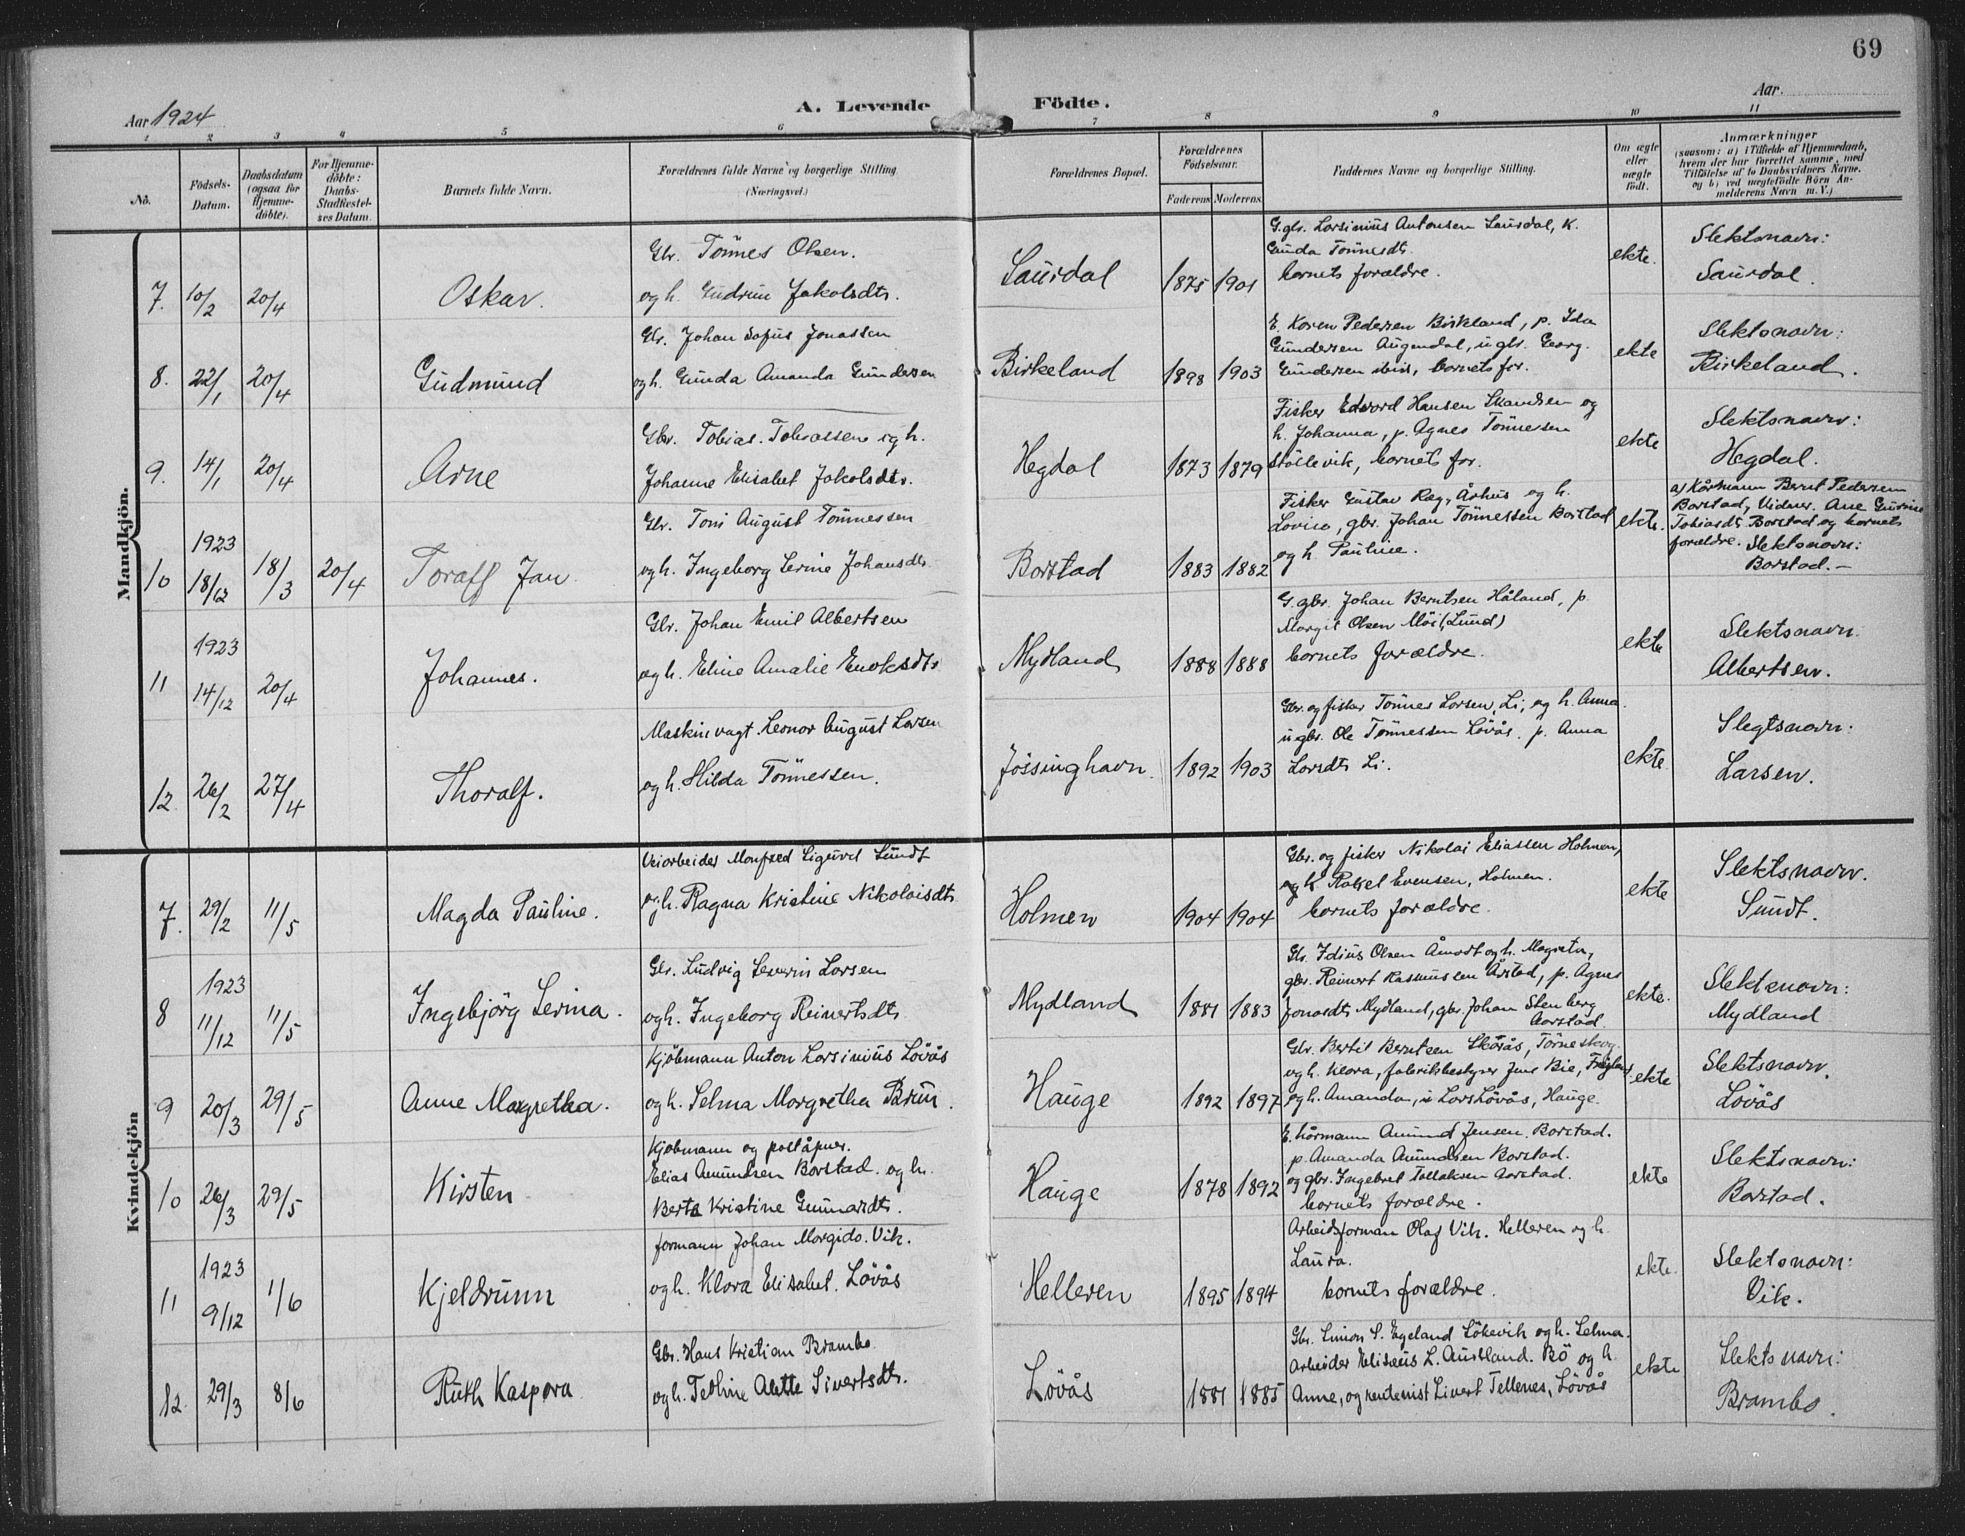 69
Aar 1924
A. Levende Födte.
Aar
1 2 3 4 5 6 7 8 9 10 11
No.
Födsels-
Datum.
Daabsdatum
(ogsaa for
Hjemme-
döbte).
For Hjemme-
döbte:
Daabs-
Stadfæstel-
ses Datum.
Barnets fulde Navn.
Forældrenes fulde Navne og borgerlige Stilling
(Næringsvei.)
Forældrenes Bopæl.
Forældrenes
Födselsaar.
Faderens Moderens
Faddernes Navne og borgerlige Stilling.
Om ægte
eller
uægte
födt.
Anmærkninger
(saasom: a) i Tilfælde af Hjemmedaab,
hvem der har forrettet samme, med
Tilföielse af to Daabsvidners Navne.
og b) ved uægtefödte Börn An-
melderens Navn m. V.)
Mandkjön.
7. 10/2 20/4 Oskar.
Gbr. Tönnes Olsen.
og h. Gudrun Jakobsdtr.
Saurdal 1875 1901
G.gbr. Larsinius Antonsen Saurdal, K.
Gunda Tönnesdtr.
barnets forældre.
ekte.
Slektsnavn:
Saurdal.
8. 22/1 20/4 Gudmund
Gbr. Johan Sofus Jonassen
og h. Gunda Amanda Gundersen
Birkeland 1898 1903
E. Karen Pedersen Birkeland, p. Ida
Gundersen Augendal, u gbr. Georg.
Gundersen ibid, barnets for.
ekte
Slektsnavn:
Birkeland.
9. 14/1 20/4 Arne
Gbr. Tobias Tobiassen og h.
Johanne Elisabet Jakobsdtr.
Hegdal 1873 1879
Fisker Edvard Hansen Skandsen og
h. Johanna, p. Agnes Tönnesen
Stöllevik, barnets for.
ekte
Slektsnavn:
Hegdal.
10 1923 18/12 18/3 20/4 Toralf Jan
Gbr. Toni August Tönnessen
og h. Ingeborg Serine Johansdtr
Barstad 1883 1882
Fisker Gustav Rag, Århus og h.
Lovise, gbr. Johan Tönnessen Barstad
og h. Pauline.
ekte.
a) Kårmann Bernt Pedersen
Barstad, Vidner. Ane Gurine
Tobiasdtr Barstad og barnets
forældre. Slektsnavn:
Barstad.
11 1923 14/12 20/4 Johannes.
Gbr. Johan Emil Albertsen
og h. Eline Amalie Enoksdtr
Mydland 1888 1888
G. gbr. Johan Berntsen Håland, p.
Margit Olsen Möi (Lund)
barnets forældre.
ekte
Slektsnavn.
Albertsen.
12 26/2 27/4 Thoralf.
Maskinvagt. Leonar August Larsen
og h. Hilda Tönnessen.
Jössinghavn 1892 1903
Gbr. og fisker Tönnes Larsen, Li, og h. Anna.
u gbr. Ole Tönnessen Lövås. p. Anna
Larsdtr Li.
ekte
Slegtsnavn:
Larsen.
Kvindekjön
7. 29/2 11/5 Magda Pauline.
Veiarbeider Manfred Sigurd Sundt
og h. Ragna Kristine Nikolaisdtr
Holmen 1904 1904
Gbr. og fisker Nikolai Eliassen Holmen,
og h. Rakel Evensen, Holmen.
barnets forældre.
ekte
Slektsnavn.
Sundt.
8 1923 11/12 11/5 Ingebjörg Serina.
Gbr. Ludvig Severin Larsen
og h. Ingeborg Reinertsdtr
Mydland 1881 1883
Gbr. Idius Olsen Åmodt og h. Magreta,
gbr. Reinert Rasmussen Årstad, p. Agnes
Jonasdtr Mydland, gbr. Johan Stenberg
Aarstad
ekte.
Slektsnavn:
Mydland
9 20/3 29/5 Anne Margretha.
Kjöbmann Anton Larsinius Lövås
og h. Selma Margretha Bruun.
Hauge 1892 1897
Gbr. Bertil Berntsen Skårås,
og h. Klara, fabrikbestyrer Jens Bie,
og h. Amanda, u Lars Lövås, Hauge.
ekte
Slektsnavn.
Lövås
10 26/3 29/5 Kirsten
Kjöbmann og poståpner.
Elias Amundsen Barstad. og h.
Berta Kristine Gunnarsdtr.
Hauge 1878 1892
E. kårmann Amund Jensen Barstad.
p. Amanda Amundsen Barstad.
og gbr. Ingebret Tollaksen Aarstad.
barnets forældre.
ekte
Slektsnavn:
Barstad.
11 1923 9/12 1/6 Kjeldrunn
formann Johan Margido. Vik.
og h. Klara Elisabet. Lövås
Helleren 1895 1894
Arbeidsforman Olaf Vik. Helleren og h.
Laura.
barnets forældre.
ekte.
Slektsnavn:
Vik.
12. 29/3 8/6 Ruth Kaspara
Gbr. Hans Kristian Brambo
og h. Teoline Alette Sivertsdtr.
Lövås 1881 1885
Gbr. Simon S. Egeland Lökevik og h. Selma.
Arbeider Eliseus L. Austland. Bö og h.
Anne, og rendenist Sivert Tellenes, Lövås
ekte
Slektsnavn:
Brambo.